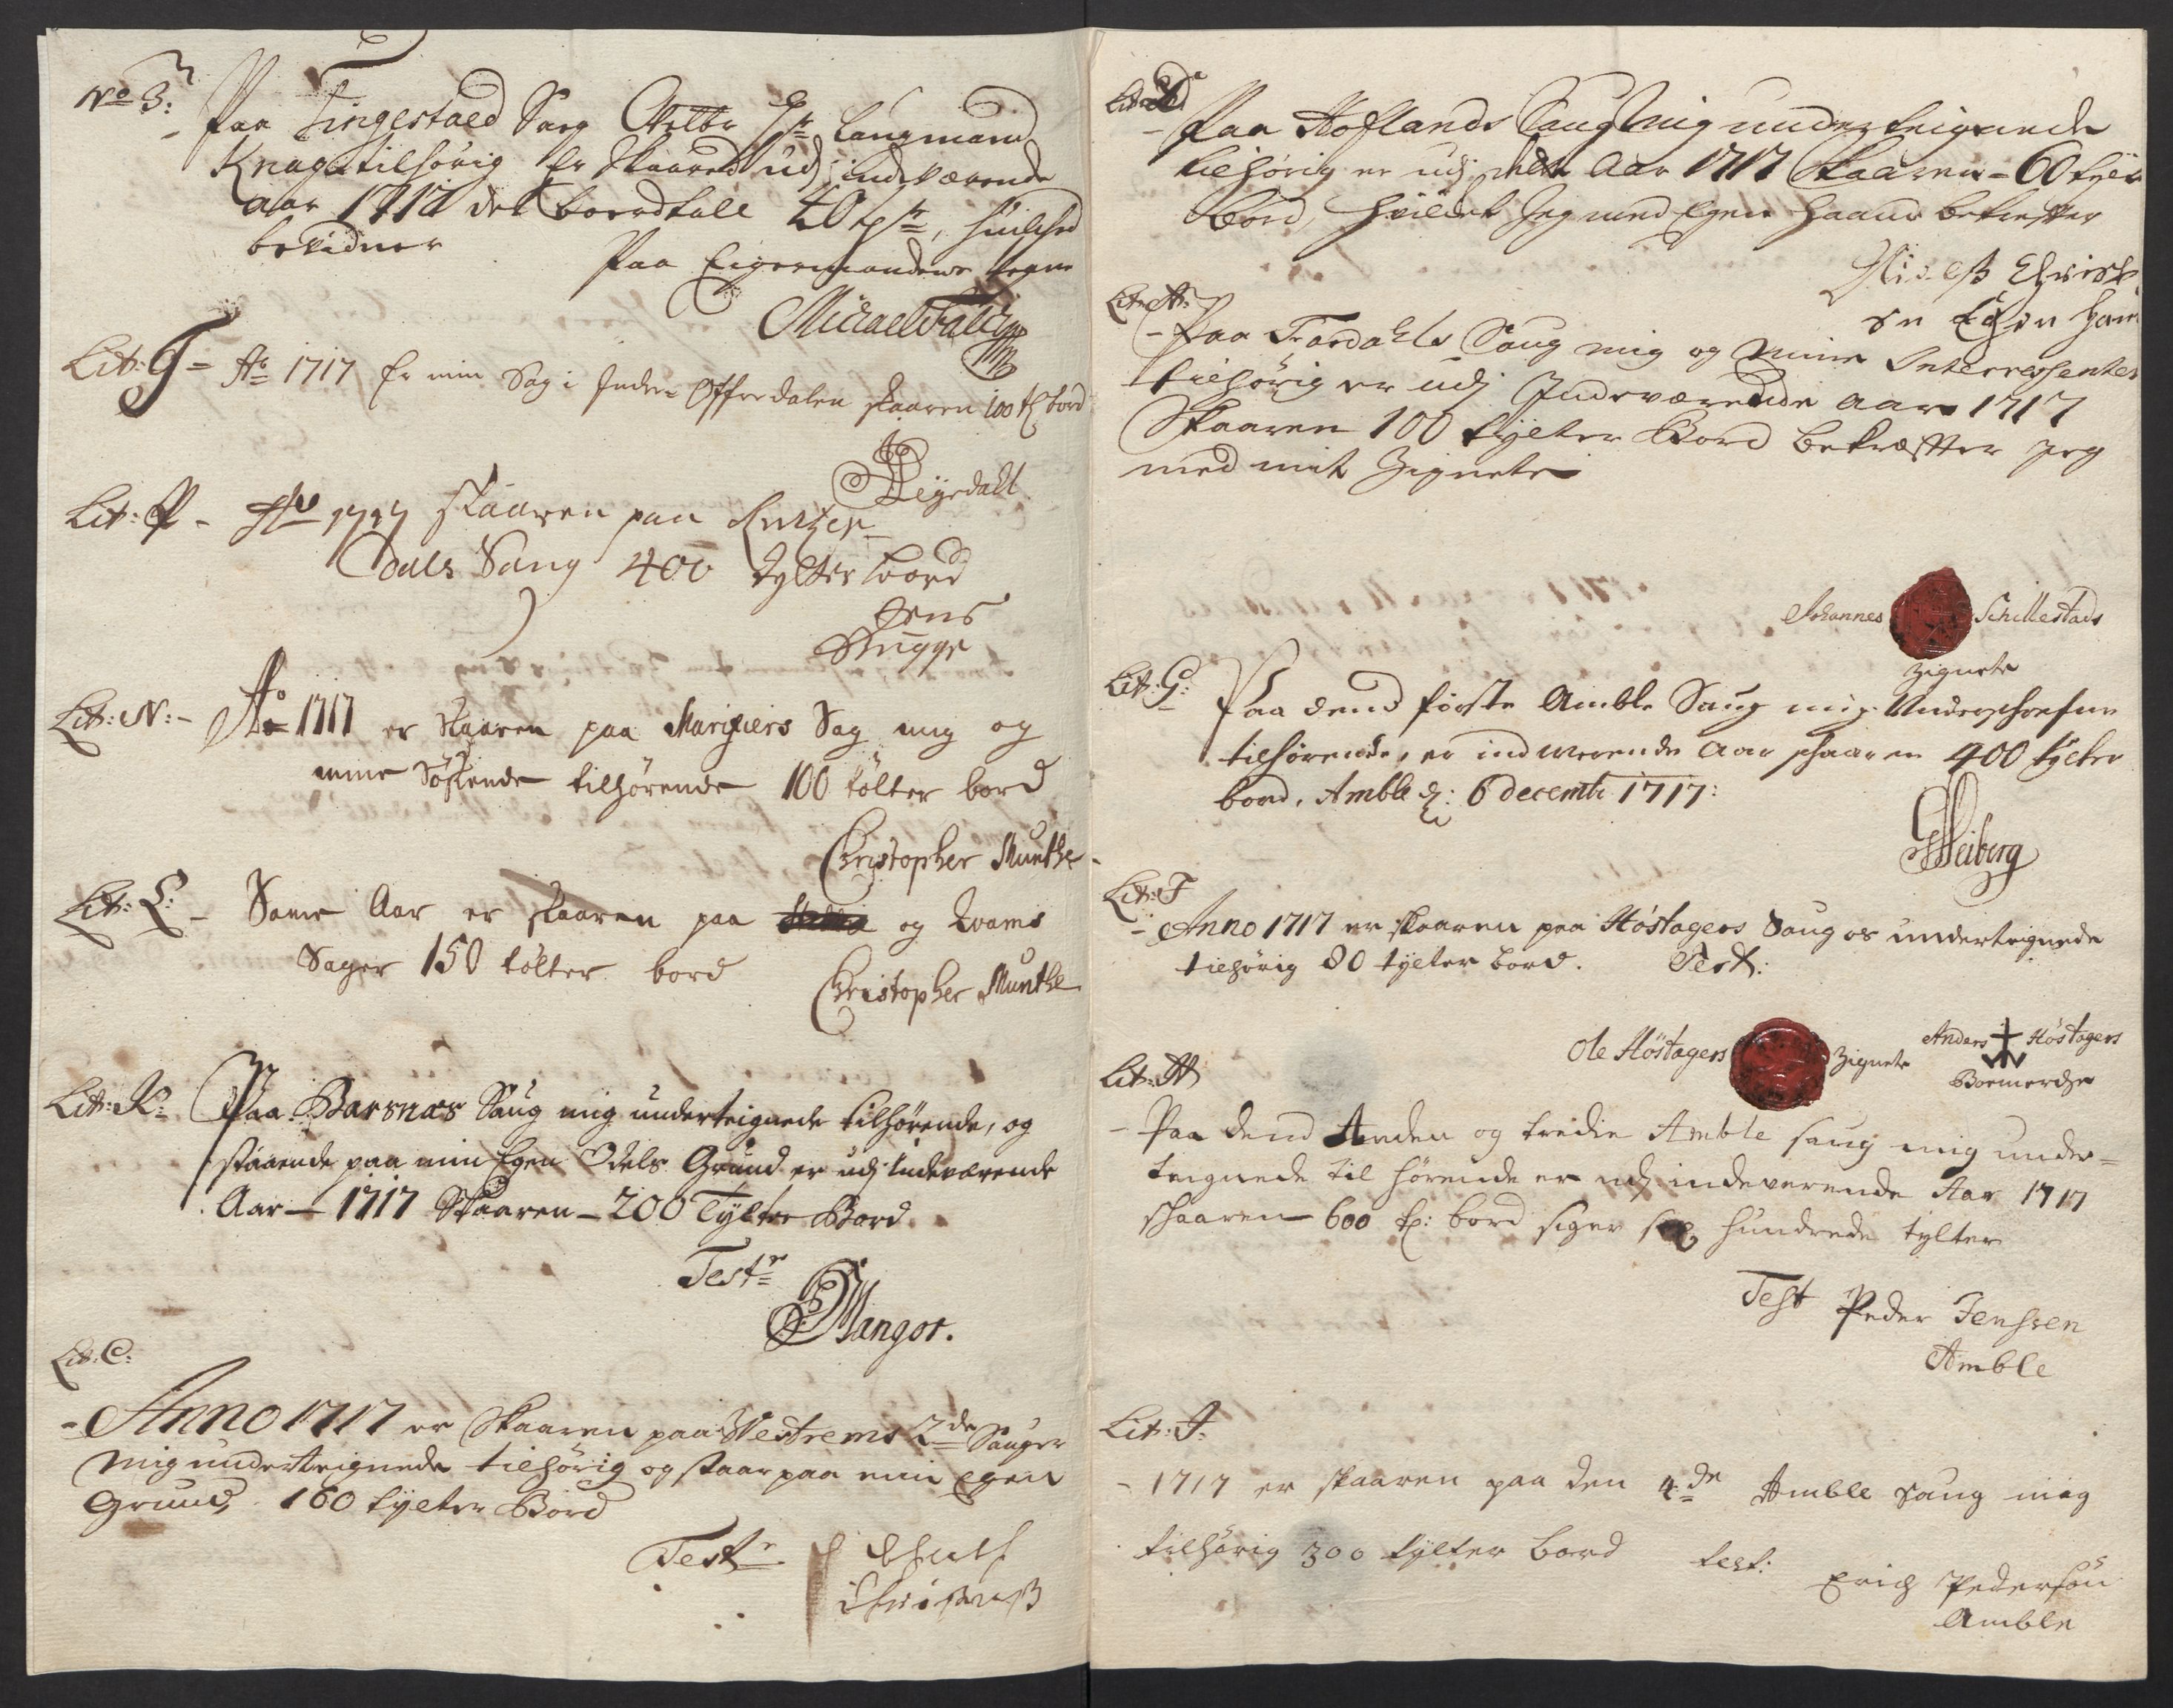 No 3:
Paa Tingestaed Saug Hr Laugmand
Knagtilhørig Er Skaared udj indeværende
aar 1717 det bordtall 40
bevidner
Paa Eigermandens vegne
Michael Falch
Lit: T= Ao 1717 Er min Sag i Indre Offredalen skaaren 100 t bord
Leÿrdahl
Lit: P - Ao 1717 skaaren paa
dals Saug 400 tylter bord
Jens
Bugge
Lit: N: - Ao 1717 er skaaren paa Marifiers Sag mig og
mine Søskende tilhørende 100 tölter bord
Christopher Munthe
Lit: L: - Same Aar er skaaren paa og Qvams
Sager 150 tölter bord
Christopher Munthe
Lit: K: Paa Barsnæs Saug mig underteignede tilhørende, og
staaende paa min Egen Odels Grund er udj indeværende
Aar - 1717 Skaaren - 200 Tylter Bord
Test
Mangor.
Lit: C:
- Anno 1717 er Skaaren paa Westrems 2de Sauger
mig underteignede tilhørig og staar paa min Egen
Grund, 160 tylter Bord
Test
Lit: D
- Paa Hoflands Saug mig underteignede
tilhørig er udj dette Aar 1717 Skaaren - 60 tylt
Bord, hvilcket Jeg med Egen haand bekreffter
Christ
sn Egen han
Lit: A:
- Paa Fardahls Saug mig og mine Interressenter
tilhørig er udj Indeværende aar 1717
Skaaren 100 tylter Bord bekræffter jeg
med mit Zignete
Johannes Schillestads
Zignete
Lit: G: Paa dend første Amble Saug mig Underschrefne
tilhørende, er indwerende Aar schaaren 400 tylter
bord. Amble d: 6 decembr 1717:
GHeiberg
Lit: F
- Anno 1717 er skaaren paa Höstagers Saug os underteignede
tilhørig 80 tylter bord. Test:
Ole Höstagers Zignete
Anders Höstagers
Boemerche
Lit: H
- Paa dend Anden og tredie Amble saug mig under=
teignede til hørende er udj indeverende Aar 1717
schaaren 600 t: bord siger sex hundrede tylter
Test Peder Jenssen
Amble
Lit: I:
- 1717 er skaaren paa den 4de Amble saug mig
tilhørig 300 tylter bord test:
Erich Pedersøn
Amble